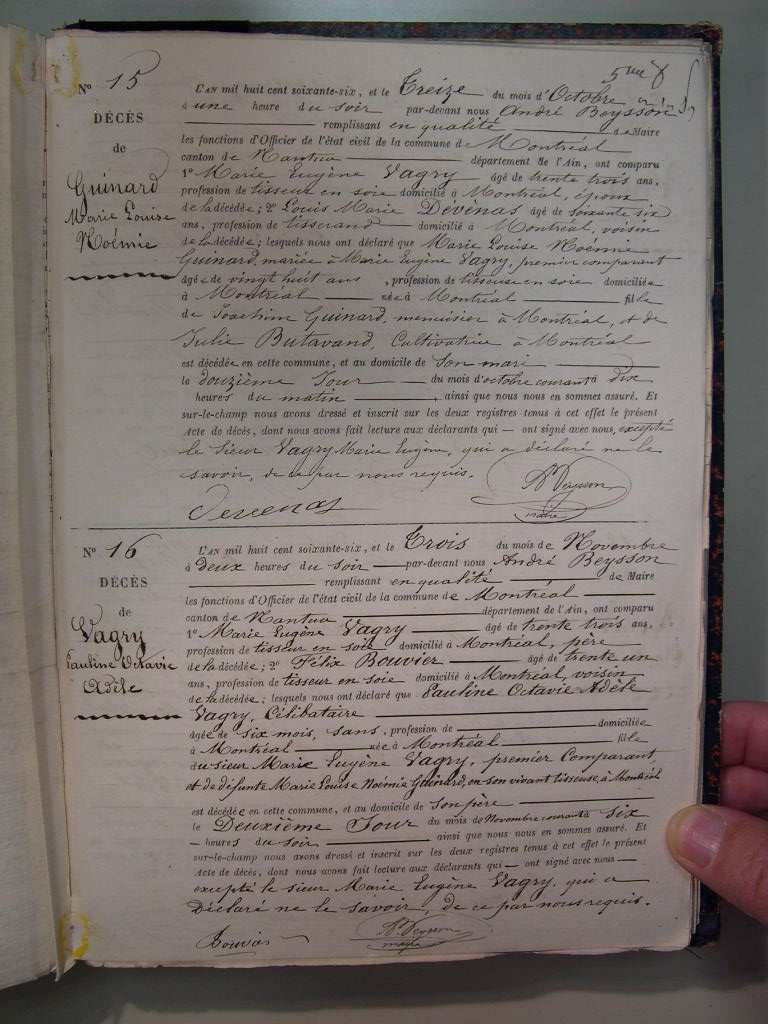 5me
N° 15
DÉCÈS
de
Guinard
Marie Louise
Noémie
L'AN mil huit cent soixante-six, et le Treize du mois d'Octobre
à une heure du soir par-devant nous André Beysson
remplissant en qualité de Maire
les fonctions d'Officier de l'état civil de la commune de Montréal
canton de Nantua département de l'Ain, ont comparu
1° Marie Eugène Vagry âgé de trente trois ans,
profession de tisseur en soie domicilié à Montréal, époux
de la décédée; 2° Louis Marie Dévénas âgé de soixante six
ans, profession de tisserand domicilié à Montréal, voisin
de la décédée; lesquels nous ont déclaré que Marie Louise Noémie
Guinard, mariée à Marie Eugène Vagry, premier comparant
âgée de vingt huit ans, profession de tisseuse en soie domiciliée
à Montréal née à Montréal fille
de Joachim Guinard, menuisier à Montréal, et de
Julie Butavand, Cultivatrice à Montréal
est décédée en cette commune, et au domicile de son mari
le douzième Jour du mois d'octobre courant à dix
heures du matin, ainsi que nous nous en sommes assuré. Et
sur-le-champ nous avons dressé et inscrit sur les deux registres tenus à cet effet le présent
Acte de décès, dont nous avons fait lecture aux déclarants qui — ont signé avec nous, excepté
le sieur Vagry Marie Eugène, qui a déclaré ne le
savoir, de ce par nous requis.
Devenas
Ad Beysson
maire
N° 16
DÉCÈS
de
Vagry
Pauline Octavie
Adèle
L'AN mil huit cent soixante-six, et le Trois du mois de Novembre
à deux heures du soir par-devant nous André Beysson
remplissant en qualité de Maire
les fonctions d'Officier de l'état civil de la commune de Montréal
canton de Nantua département de l'Ain, ont comparu
1° Marie Eugène Vagry âgé de trente trois ans,
profession de tisseur en soie domicilié à Montréal, père
de la décédée; 2° Félix Bouvier âgé de trente un
ans, profession de tisseur en soie domicilié à Montréal, voisin
de la décédée; lesquels nous ont déclaré que Pauline Octavie Adèle
Vagry, Célibataire
âgée de six mois, sans, profession de domiciliée
à Montréal née à Montréal fille
du sieur Marie Eugène Vagry, premier Comparant,
et de défunte Marie Louise Noémie Guinard, en son vivant tisseuse, à Montréal
est décédée en cette commune, et au domicile de son père
le Deuxième Jour du mois de Novembre courant à six
heures du soir ainsi que nous nous en sommes assuré. Et
sur-le-champ nous avons dressé et inscrit sur les deux registres tenus à cet effet le présent
Acte de décès, dont nous avons fait lecture aux déclarants qui — ont signé avec nous —
excepté le sieur Marie Eugène Vagry, qui a
Déclaré ne le savoir, de ce par nous requis.
Bouvier
Ad Beysson
maire